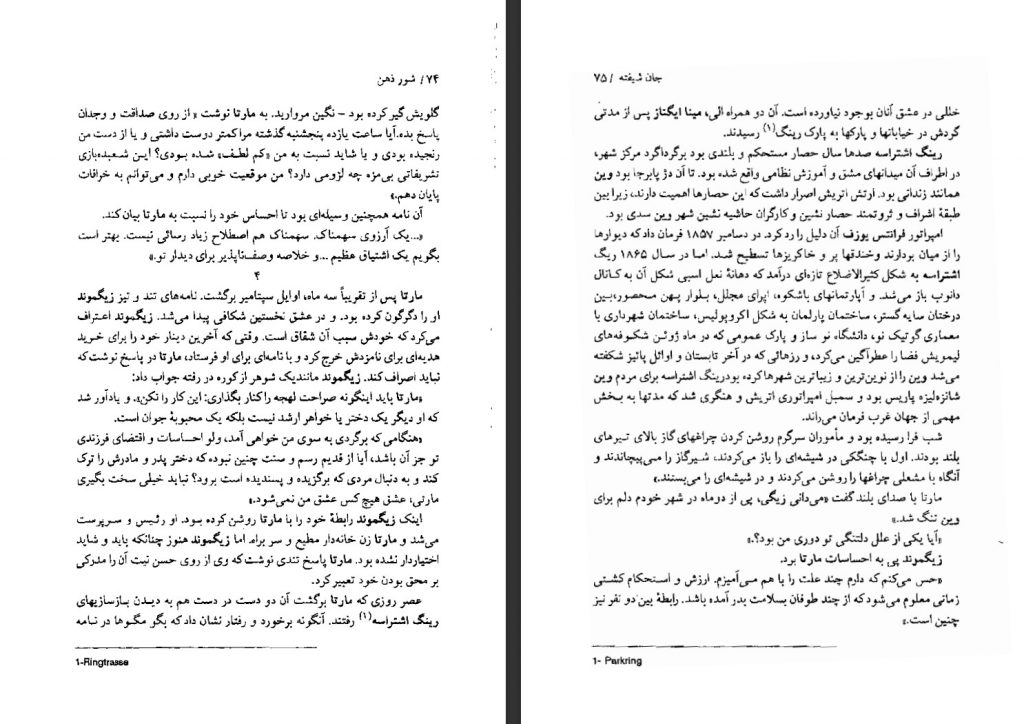 ۷۴ / شور ذهن
گلویش گیر کرده بود – نگین مروارید. به مارتا نوشت « از روی صداقت و وجدان
پاسخ بده. آیا ساعت یازده پنجشنبه گذشته مرا کمتر دوست داشتی و یا از دست من
رنجیده بودی و یا شاید نسبت به من «کم لطف» شده بودی؟ ایـن شعبده‌بازی
تشریفاتی بی‌مزه چه لزومی دارد؟ من موقعیت خوبی دارم و می‌توانم به خرافات
پایان دهم.»
آن نامه همچنین وسیله‌ای بود تا احساس خود را نسبت به مارتا بیان کند.
«...یک آرزوی سهمناک. سهمناک هم اصطلاح زیاد رسائی نیست. بهتر است
بگویم یک اشتیاق عظیم ...و خلاصه وصف‌ناپذیر برای دیدار تو.»
۴
مارتا پس از تقریباً سه ماه، اوایل سپتامبر برگشت. نامه‌های تند و تیز زیگموند
او را دگرگون کرده بود. و در عشق نخستین شکافی پیدا می‌شد. زیگموند اعتراف
می‌کرد که خودش سبب آن شقاق است. وقتی که آخرین دینار خود را برای خرید
هدیه‌ای برای نامزدش خرج کرد و با نامه‌ای برای او فرستاد، مارتا در پاسخ نوشت که
نباید اصراف کند. زیگموند مانند یک شوهر از کوره در رفته جواب داد:
«مارتا باید اینگونه صراحت لهجه را کنار بگذاری: این کار را نکن». و یادآور شد
که او دیگر یک دختر یا خواهر ارشد نیست بلکه یک محبوبهٔ جوان است.
«هنگامی که برگردی به سوی من خواهی آمد، ولو احساسات و اقتضای فرزندی
تو جز آن باشد، آیا از قدیم رسم و سنت چنین نبوده که دختر پدر و مادرش را ترک
کند و به دنبال مردی که برگزیده و پسندیده است برود؟ نباید خیلی سخت بگیری
مارتی، عشق هیچ کس عشق من نمی‌شود.»
اینک زیگموند رابطهٔ خود را با مارتا روشن کرده بود. او رئیس و سرپرست
می‌شد و مارتا زن خانه‌دار مطیع و سر براه. اما زیگموند هنوز چنانکه باید و شاید
اختیاردار نشده بود. مارتا پاسخ تندی نوشت که وی از روی حسن نیت آن را مدرکی
بر محق بودن خود تعبیر کرد.
عصر روزی که مارتا برگشت آن دو دست در دست هم به دیـدن بازسازیهای
رینگ اشتراسه (۱) رفتند. آنگونه برخورد و رفتار نشان داد که بگو مگوها در نامه
1-Ringtrasse
جان شیفته / ۷۵
خللی در عشق آنان بوجود نیاورده است. آن دو همراه الی، مینا ایگناز پس از مدتی
گردش در خیابانها و پارکها به پارک رینگ(۱) رسیدند.
رینگ اشتراسه صدها سال حصار مستحکم و بلندی بود برگرداگرد مرکز شهر،
در اطراف آن میدانهای مشق و آموزش نظامی واقع شده بود. تا آن دژ پابرجا بود وین
همانند زندانی بود. ارتش اتریش اصرار داشت که این حصارها اهمیت دارند، زیرا بین
طبقهٔ اشراف و ثروتمند حصار نشین و کارگران حاشیه نشین شهر وین سدی بود.
امپراتور فرانتس یوزف آن دلیل را رد کرد. در دسامبر ۱۸۵۷ فرمان داد که دیوارها
را از میان بردارند وخندقها پر و خاکریزها تسطیح شـد. اما در سال ۱۸۶۵ رینگ
اشتراسه به شکل کثیرالاضلاع تازه‌ای درآمد که دهانهٔ نعل اسبی شکل آن به کانال
دانوب باز می‌شد. و آپارتمانهای باشکوه، اپرای مجلل، بلوار پهن محصور بین
درختان سایه گستر، ساختمان پارلمان به شکل اکروپولیس، ساختمان شهرداری با
معماری گوتیک نو، دانشگاه نو ساز و پارک عمومی که در ماه ژوئن شکوفه‌های
لیمویش فضا را عطرآگین می‌کرد، و رزهائی که در آخر تابستان و اوائل پائیز شکفته
می‌شد وین را از نوین‌ترین و زیباترین شهرها کرده بود رینگ اشتراسه برای مردم وین
شانزه‌لیزه پاریس بود و سمبل امپراتوری اتریش و هنگری شد که مدتها به بخش
مهمی از جهان غرب فرمان می‌راند.
شب فرا رسیده بود و مأموران سرگرم روشن کردن چراغهای گاز بالای تیرهای
بلند بودند. اول با چنگکی در شیشه‌ای را باز می‌کردند، شیرگاز را می‌پیچاندند و
آنگاه با مشعلی چراغها را روشن می‌کردند و در شیشه‌ای را می‌بستند.»
مارتا با صدای بلند گفت «می‌دانی زیگی، پی از دوماه در شهر خودم دلم برای
وین تنگ شد.»
«آیا یکی از علل دلتنگی تو دوری من بود؟.»
زیگموند پی به احساسات مارتا برد.
«حس می‌کنم که دارم چند علت را با هم می‌آمیزم. ارزش و استحکام کشتی
زمانی معلوم می‌شود که از چند طوفان بسلامت بدر آمده باشد. رابطهٔ بین دو نفر نیز
چنین است.»
1- Parkring